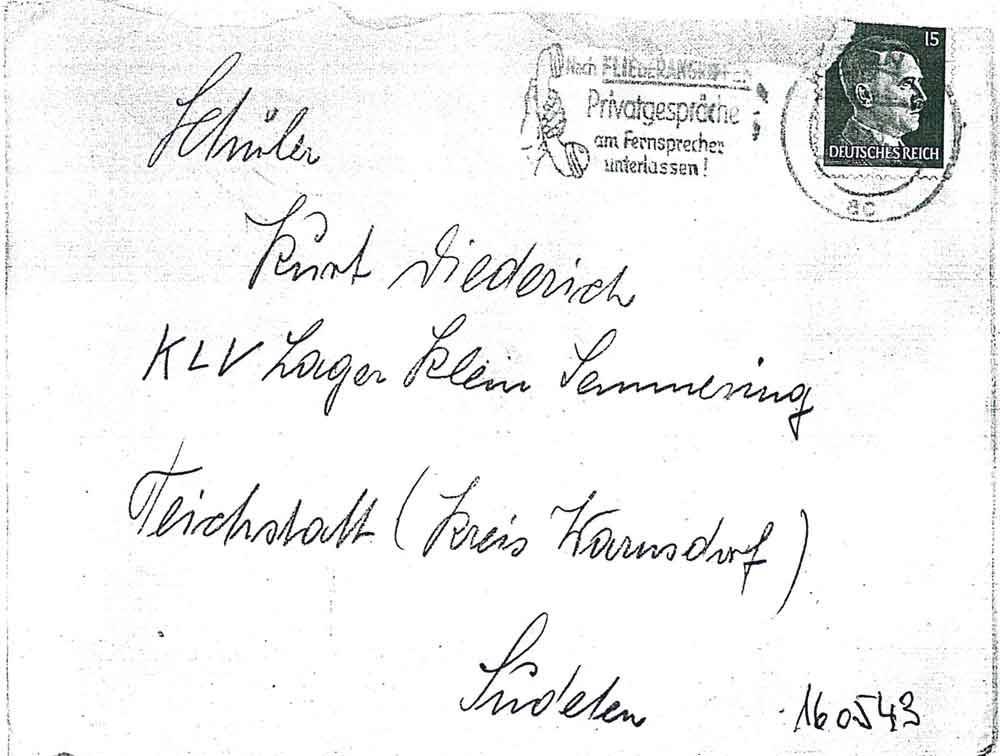 Nach FLIEGERANGRIFFEN
Privatgespräche
am Fernsprecher
unterlassen!
15
DEUTSCHES REICH
ac
Schüler
Kurt Diederich
KLV Lager Klein Semmering
Teichstatt (Kreis Warnsdorf)
Sudeten
160543